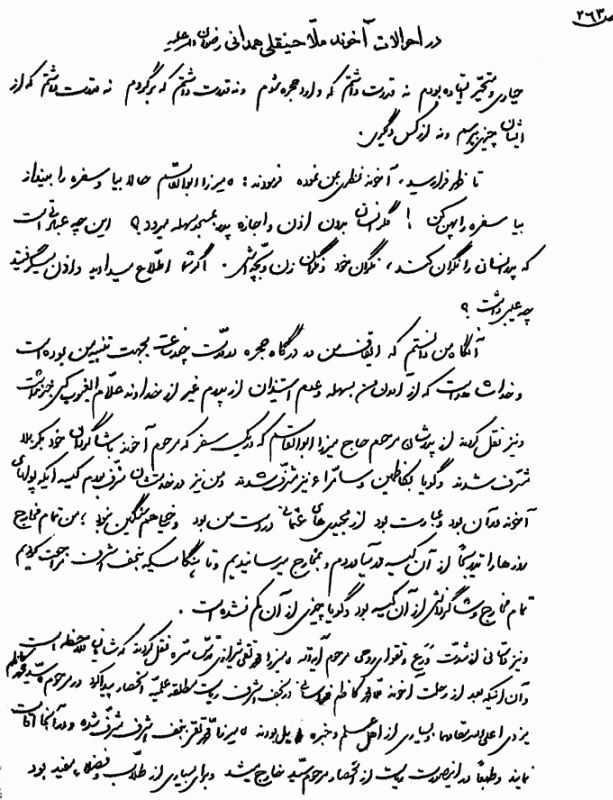 ص ۲۶۳
در احوالات آخوند ملّا حسینقلی همدانی رضوان الله علیه
حیاری و متحیّر ایستاده بودم نه قدرت داشتم که وارد حجره شوم و نه قدرت داشتم که برگردم نه قدرت داشتم که از
ایشان چیزی بپرسم و نه از کس دیگری.
تا ظهر فرا رسید، آخوند نظری بمن نموده فرمودند: میرزا ابوالقاسم حالا بیا و سفره را بینداز
بیا سفره را پهن کن! مگر انسان بدون اذن و اجازه پدر بمسجد سهله میرود؟ این چه عبادتی است
که پدر انسان را نگران کند، نگران خود و نگران زن و بچّه اش. اگر شما اطّلاع میدادید و اذن میگرفتید
چه عیبی داشت؟
آنگاه من دانستم که ایقاف من در درگاه حجره در مدّت چند ساعت بجهت تنبیه من بوده است
و خدا شاهد است که از آمدن من بسهله و عدم استیذان از پدرم غیر از خداوند علّام الغیوب کسی خبر نداشت
و نیز نقل کردند از پدرشان مرحوم حاج میرزا ابوالقاسم که در یک سفر که مرحوم آخوند با شاگردان خود بکربلا
مشرّف شدند و گویا بکاظمین و سامرّاء نیز مشرّف شدند و من نیز در خدمتشان مشرّف بودم کیسه ایکه پولهای
آخوند در آن بود و عبارت بود از مجیدی های عثمانی در دست من بود و خیلی هم سنگین نبود؛ من تمام مخارج
روزها را تدریجاً از آن کیسه در میآوردم و بمخارج میرسانیدیم و تا هنگامیکه بنجف اشرف مراجعت کردیم
تمام مخارج و شاگردانش از آن کیسه بود و گویا چیزی از آن کم نشده است.
و نیز داستانی از شدّت ورع و تقوای روحی مرحوم آیة الله میرزا محمّد تقی شیرازی قدّس سرّه نقل کردند که شایان ملاحظه است
و آن اینکه بعد از رحلت آخوند ملّا محمّد کاظم خراسانی در نجف اشرف ریاست مطلقه علمیّه انحصار پیدا کرد در مرحوم سیّد محمّد کاظم
یزدی اعلی الله مقامهما و بسیاری از اهل علم و خبره مایل بودند میرزا محمّد تقی بنجف اشرف مشرّف شده و در آنجا اقامت
نمایند و طبعاً در اینصورت ریاست از انحصار مرحوم سیّد خارج میشد و برای بسیاری از طلّاب و فضلاء مفید بود